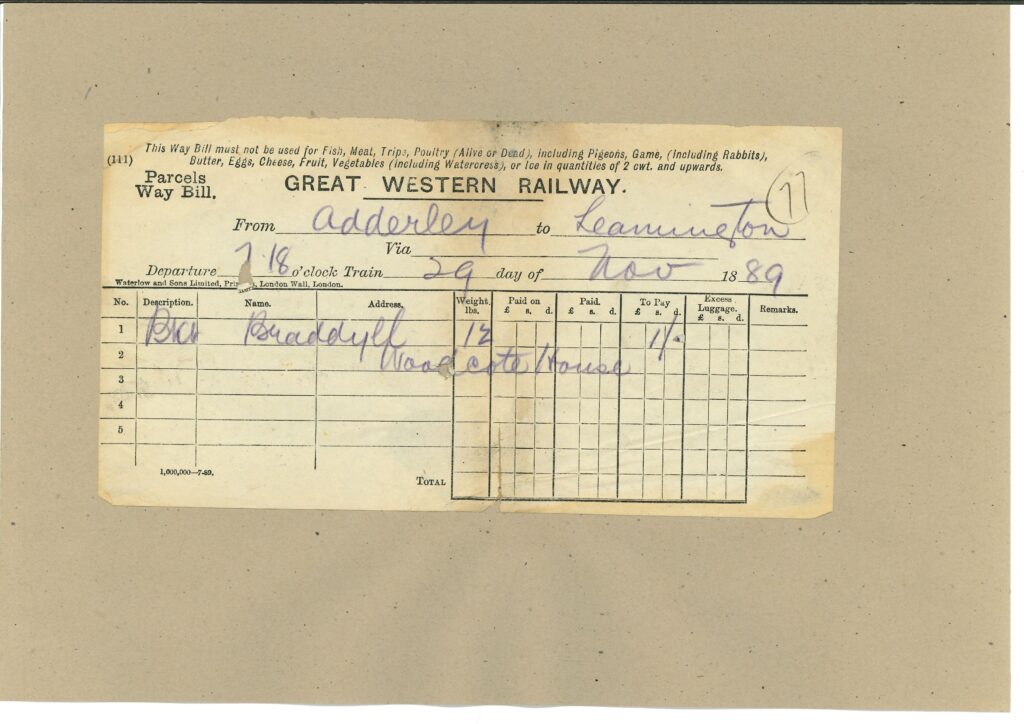 This Way Bill must not be used for Fish, Meat, Tripe, Poultry (Alive or Dead), including Pigeons, Game, (including Rabbits),
(111) Butter, Eggs, Cheese, Fruit, Vegetables (including Watercress), or Ice in quantities of 2 cwt. and upwards.
Parcels
Way Bill.
GREAT WESTERN RAILWAY.
77
From Adderley to Leamington
Via
Departure 7.18 o'clock Train 29 day of Nov 1889
Waterlow and Sons Limited, Printers, London Wall, London.
No. Description. Name. Address. Weight lbs. Paid on £ s. d. Paid. £ s. d. To Pay £ s. d. Excess Luggage. £ s. d. Remarks.
1 Braddyll 12 1/-
2 Woodcote House
3
4
5
1,000,000—7-89.
TOTAL